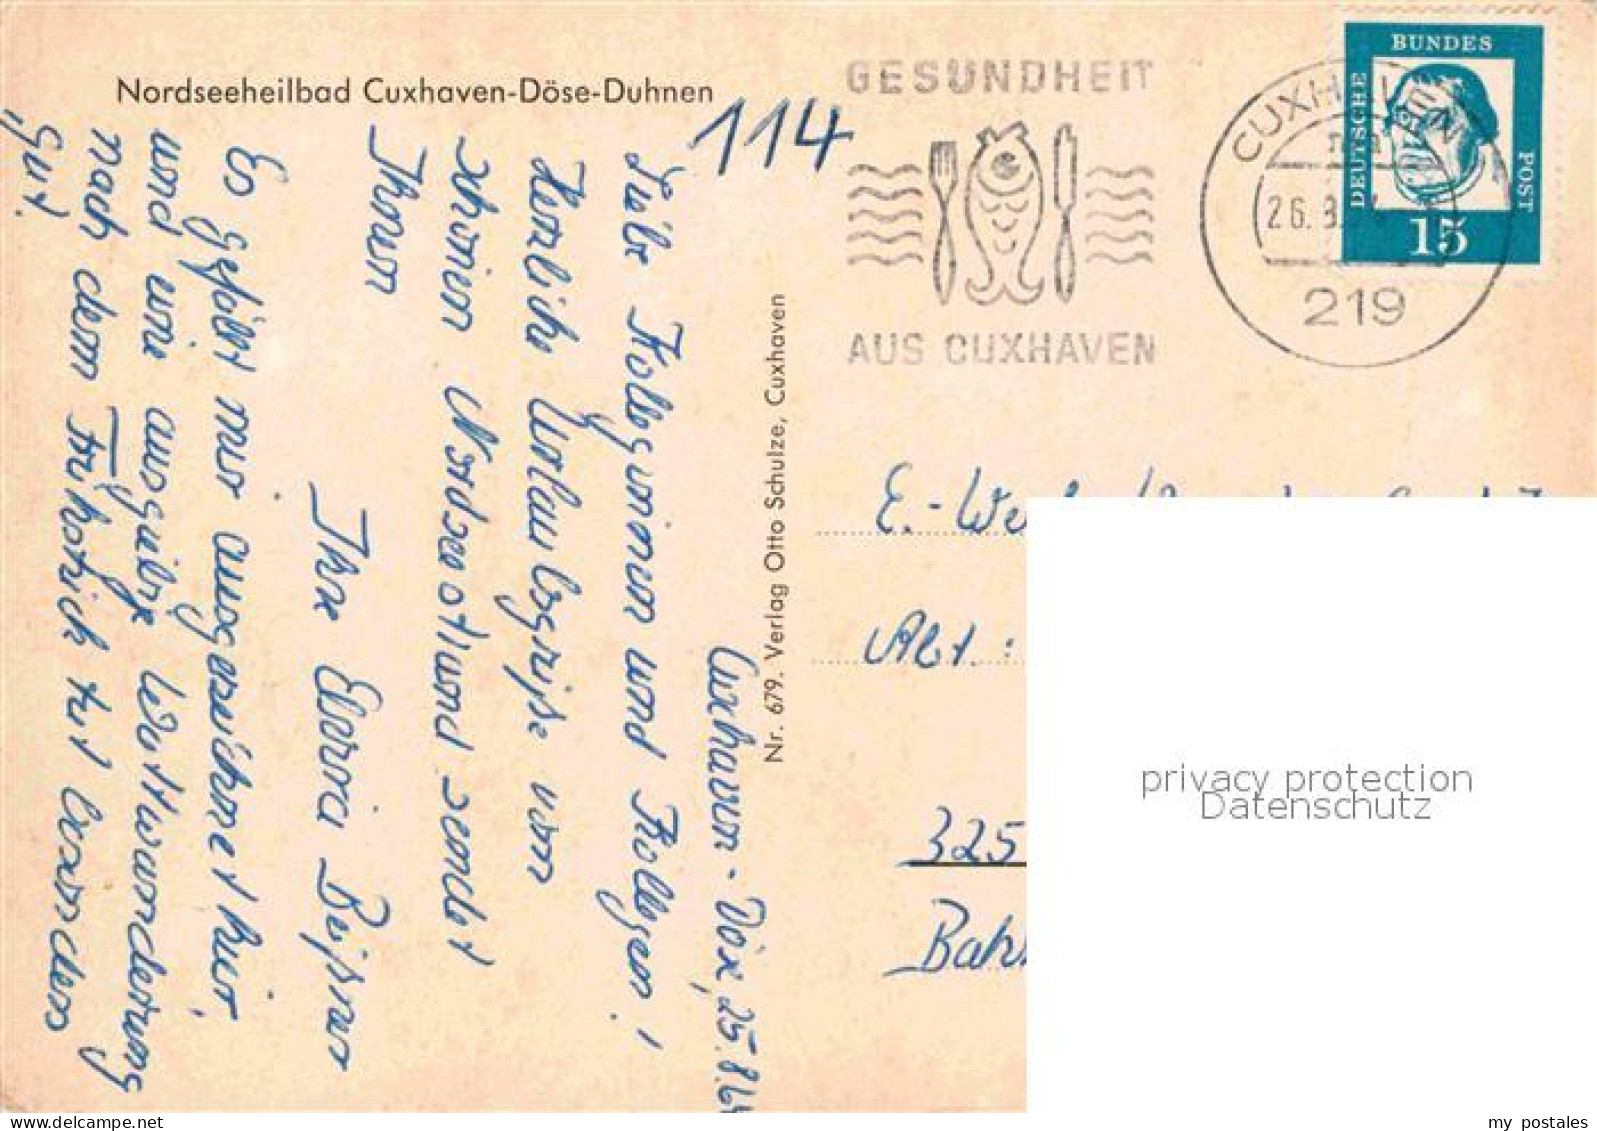 Nordseeheilbad Cuxhaven-Döse-Duhnen
114
GESUNDHEIT
AUS CUXHAVEN
CUXHAVEN
26.8.
219
DEUTSCHE
BUNDES
POST
15
Nr. 679. Verlag Otto Schulze, Cuxhaven
Cuxhaven - Döse, 25.8.64
Liebe Kolleginnen und Kollegen!
Herzliche Urlaubsgrüße vom
schönen Nordseestrand sendet
Ihnen
Ihre
Es gefällt mir ausgezeichnet hier,
und eine ausgiebige Wattwanderung
nach dem Frühstück tut besonders
gut.
E.-We
Abt.:
325
Bahn
privacy protection
Datenschutz
my postales